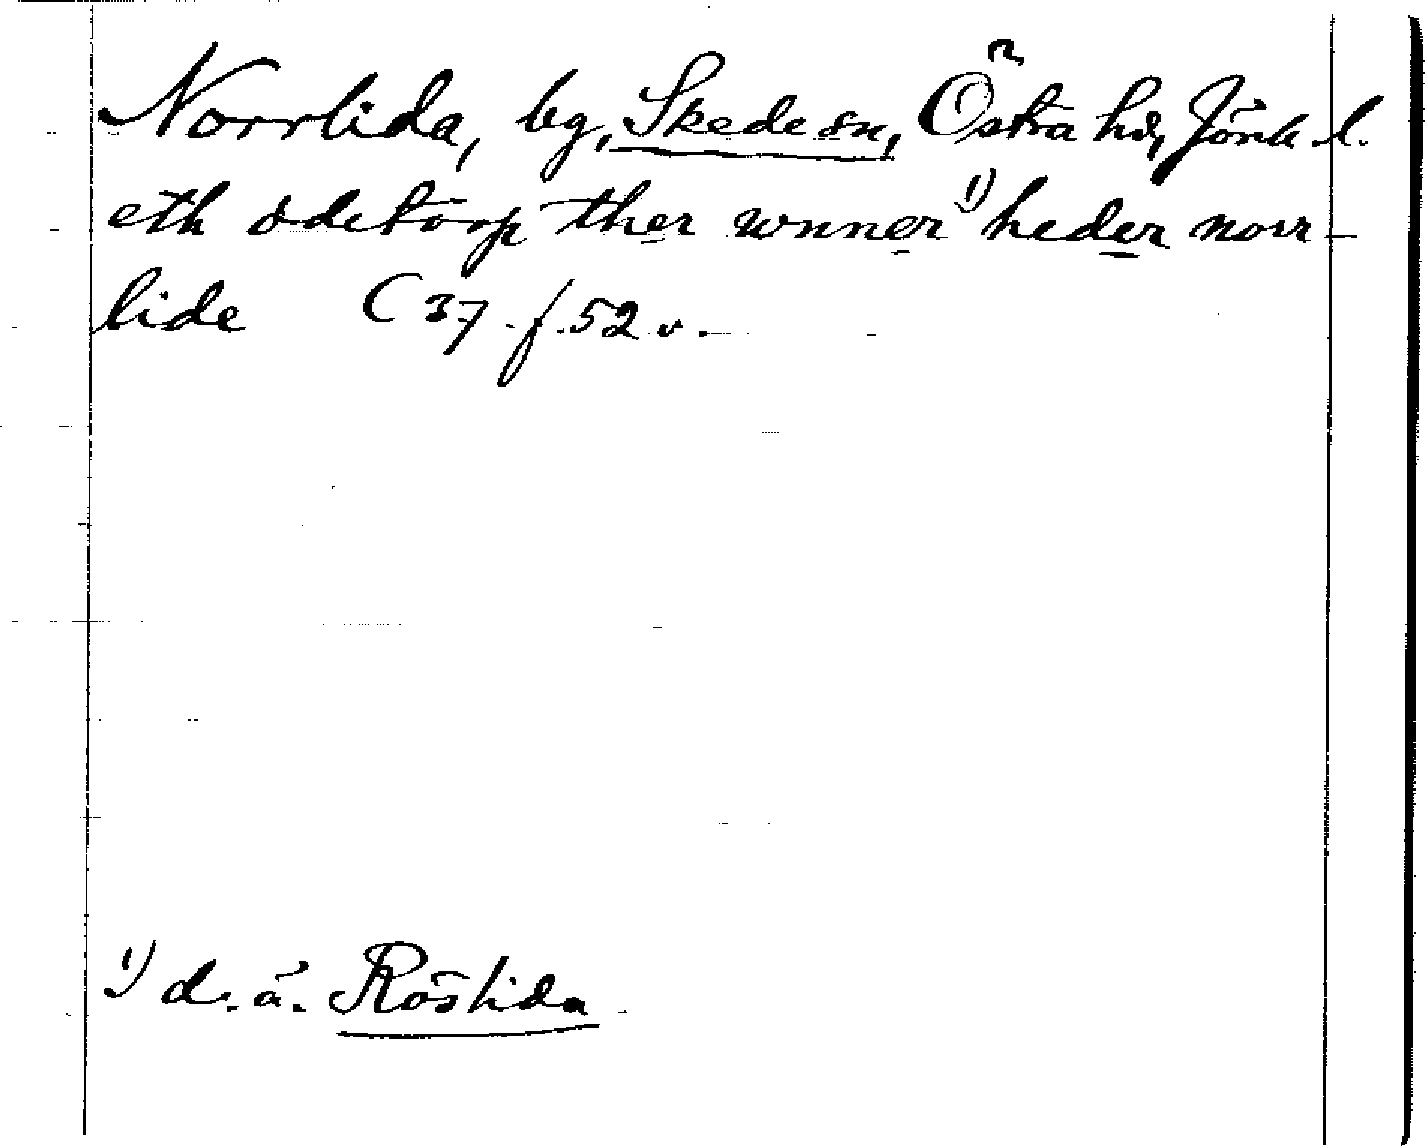 Norrlida, bg, Skede sn, Östra hd, Jönk. l.
eth ödetorp ther wnner ¹⁾ heder norr-
lide C 37 f. 52 v.
¹⁾ d. ä. Röslida